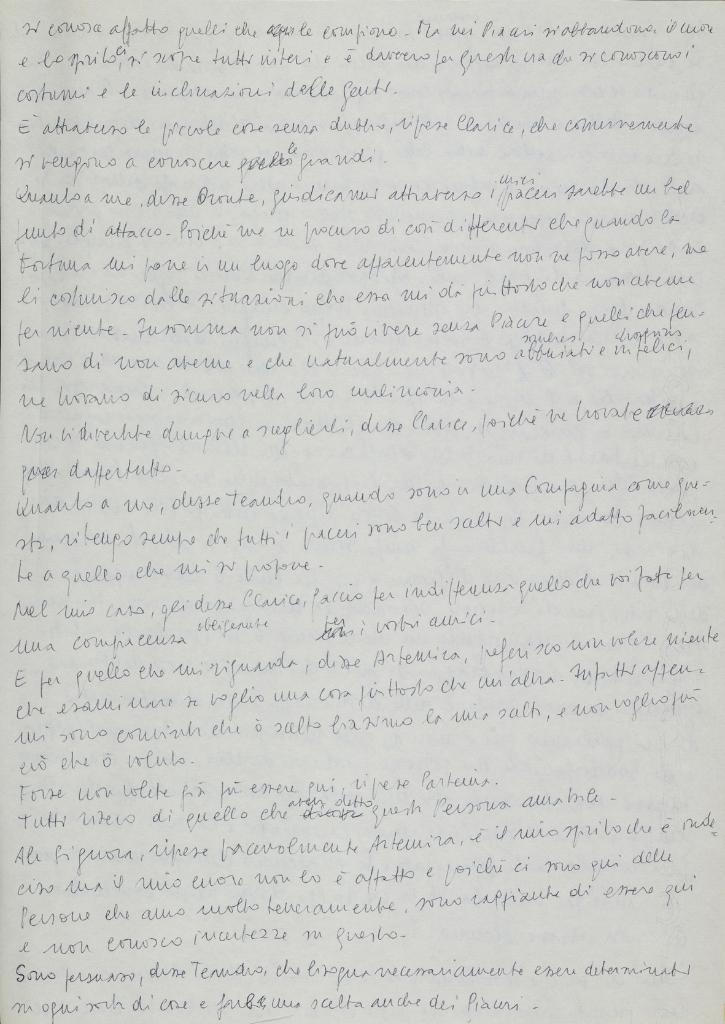 si conosce affatto quelli che le compiono. Ma nei Piaceri si abbandona il cuore
e lo spirito, ci si scopre tutti interi e è davvero per questa via che si conoscono i
costumi e le inclinazioni delle genti.
È attraverso le piccole cose senza dubbio, riprese Clarice, che comunemente
si vengono a conoscere le grandi.
Quanto a me, disse Oronte, giudicarmi attraverso i miei piaceri sarebbe un bel
punto di attacco. Poiché me ne procuro di così differenti che quando la
Fortuna mi pone in un luogo dove apparentemente non ne posso avere, me
li costruisco dalle situazioni che essa mi dà piuttosto che non averne
per niente. Insomma non si può vivere senza Piacere e quelli che pen-
sano di non averne e che naturalmente sono infelici,
ne trovano di sicuro nella loro malinconia.
Non vi divertite dunque a sceglierli, disse Clarice, poiché ne trovate
dappertutto.
Quanto a me, disse Teandro, quando sono in una Compagnia come que-
sta, ritengo sempre che tutti i piaceri sono ben scelti e mi adatto facilmen-
te a quello che mi si propone.
Nel mio caso, gli disse Clarice, faccio per indifferenza quello che voi fate per
una compiacenza obbligante per i vostri amici.
E per quello che mi riguarda, disse Artemira, preferisco non volere niente
che esaminare se voglio una cosa piuttosto che un'altra. Infatti appena
mi sono convinta che ò scelto biasimo la mia scelta, e non voglio più
ciò che ò voluto.
Forse non volete già più essere qui, riprese Partenia.
Tutti risero di quello che aveva detto questa Persona amabile.
Ah Signora, riprese piacevolmente Artemira, è il mio spirito che è inde-
ciso ma il mio cuore non lo è affatto e poiché ci sono qui delle
Persone che amo molto teneramente, sono raggiante di essere qui
e non conosco incertezze su questo.
Sono persuaso, disse Teandro, che bisogna necessariamente essere determinati
su ogni sorta di cose e fare una scelta anche dei Piaceri.